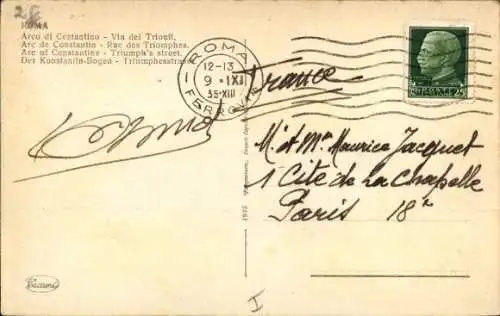 28
ROMA
Arco di Costantino - Via dei Trionfi.
Arc de Constantin - Rue des Triomphes.
Arc of Constantine - Triumph's street.
Der Konstantin-Bogen - Triumphesstrasse
ROMA
12-13
9 · XI
35·XIII
FERROVIA
France
M. et Me Maurice Jacquet
1 Cité de La Chapelle
Paris 18e
I